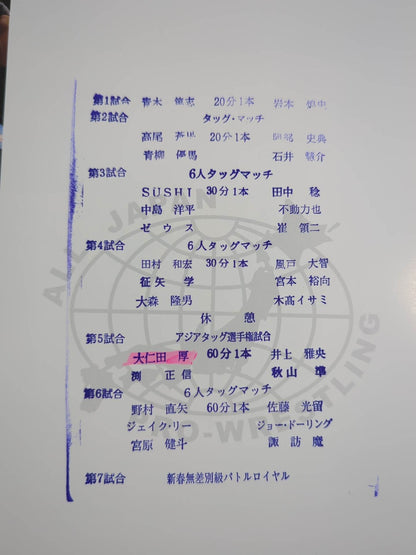 第1試合 青木 篤志 20分1本 岩本 煌史
第2試合 タッグ・マッチ
高尾 蒼馬 20分1本 阿部 史典
青柳 優馬 石井 慧介
第3試合 6人タッグマッチ
SUSHI 30分1本 田中 稔
中島 洋平 不動力也
ゼウス 崔 領二
第4試合 6人タッグマッチ
田村 和宏 30分1本 風戸 大智
征矢 学 宮本 裕向
大森 隆男 木髙イサミ
休 憩
第5試合 アジアタッグ選手権試合
大仁田 厚 60分1本 井上 雅央
渕 正信 秋山 準
第6試合 6人タッグマッチ
野村 直矢 60分1本 佐藤 光留
ジェイク・リー ジョー・ドーリング
宮原 健斗 諏訪 魔
第7試合 新春無差別級バトルロイヤル
ALL JAPAN PRO-WRESTLING